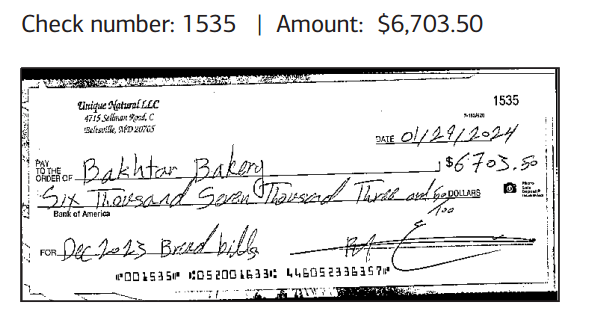 Check number: 1535 | Amount: $6,703.50
1535
Unique Natural LLC
4715 Sellman Road, C
Beltsville, MD 20705
DATE 01/29/2024
PAY TO THE ORDER OF Bakhtar Bakery $6703.50
Six Thousand Seven Thousand Three and 50/100 DOLLARS
Bank of America
FOR Dec. 2023 Bread bills
⑈001535⑈ ⑆052001633⑆ 446052336357⑈